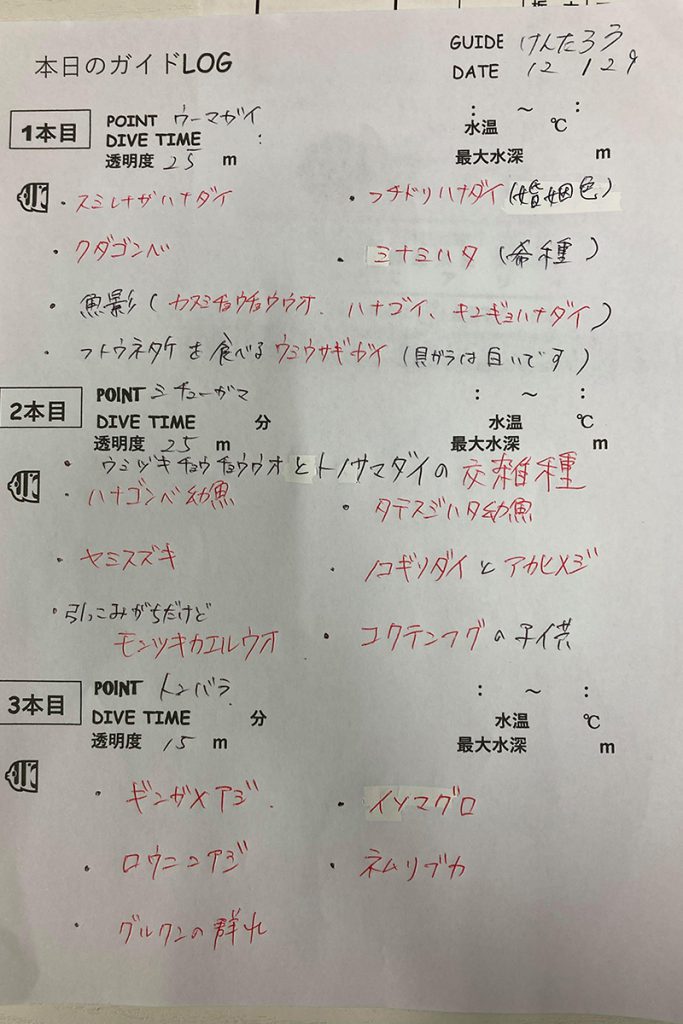 本日のガイドLOG
GUIDE けんたろう
DATE 12 / 29
1本目
POINT ウーマガイ
: ～ :
DIVE TIME :
水温 ℃
透明度 25 m
最大水深 m
・スミレナガハナダイ
・フチドリハナダイ(婚姻色)
・クダゴンベ
・ミナミハタ(希種)
・魚影(カスミチョウチョウウオ、ハナゴイ、キンギョハナダイ)
・フトウネタケを食べるウミウサギガイ(貝ガラは白いです)
2本目
POINT ミチューガマ
: ～ :
DIVE TIME 分
水温 ℃
透明度 25 m
最大水深 m
・ウミヅキチョウチョウウオとトノサマダイの交雑種
・ハナゴンベ幼魚
・タテスジハタ幼魚
・ヤミスズキ
・ノコギリダイとアカヒメジ
・引っこみがちだけど
モンツキカエルウオ
・コクテンフグの子供
3本目
POINT トンバラ
: ～ :
DIVE TIME 分
水温 ℃
透明度 15 m
最大水深 m
・ギンガメアジ
・イソマグロ
・ロウニンアジ
・ネムリブカ
・グルクンの群れ